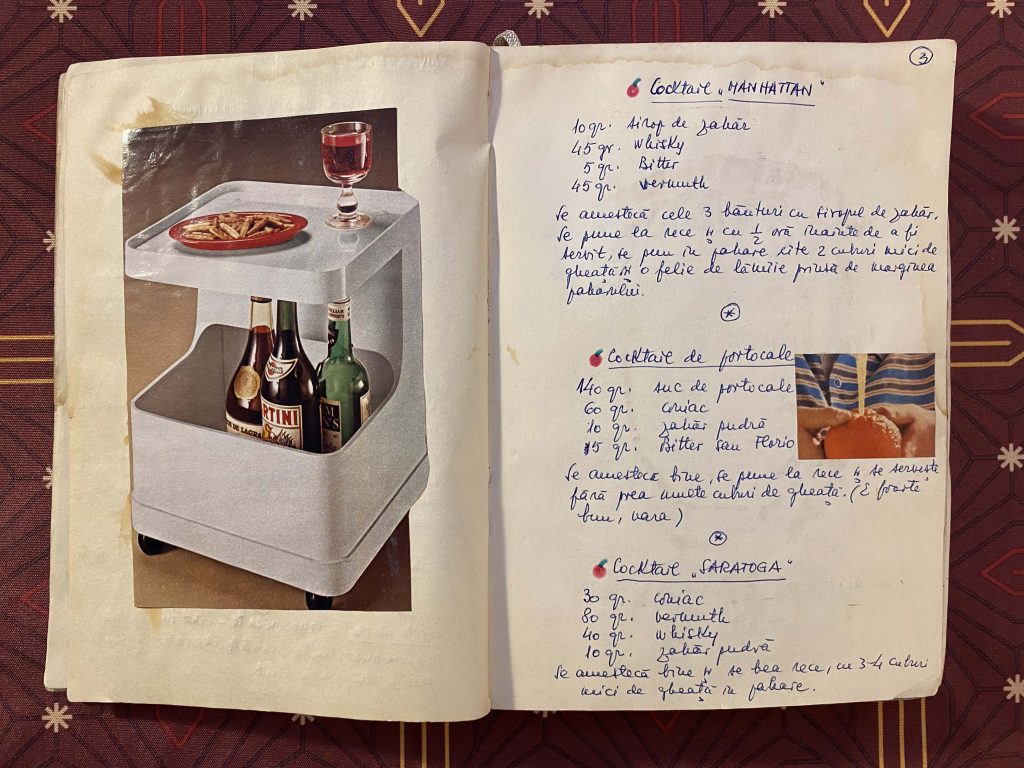 MARTINI
3
Cocktail „MANHATTAN"
10 gr. sirop de zahăr
45 gr. Whisky
5 gr. Bitter
45 gr. vermuth
Se amestecă cele 3 băuturi cu siropul de zahăr.
Se pune la rece și cu 1/2 oră înainte de a fi
servit, se pun în pahare cîte 2 cuburi mici de
gheață și o felie de lămîie prinsă de marginea
paharului.
Cocktail de portocale
140 gr. suc de portocale
60 gr. coniac
10 gr. zahăr pudră
15 gr. Bitter sau Florio
Se amestecă bine, se pune la rece și se servește
fără prea multe cuburi de gheață. (E foarte
bun, vara)
Cocktail „SARATOGA"
30 gr. coniac
80 gr. vermuth
40 gr. whisky
10 gr. zahăr pudră
Se amestecă bine și se bea rece, cu 3-4 cuburi
mici de gheață în pahare.